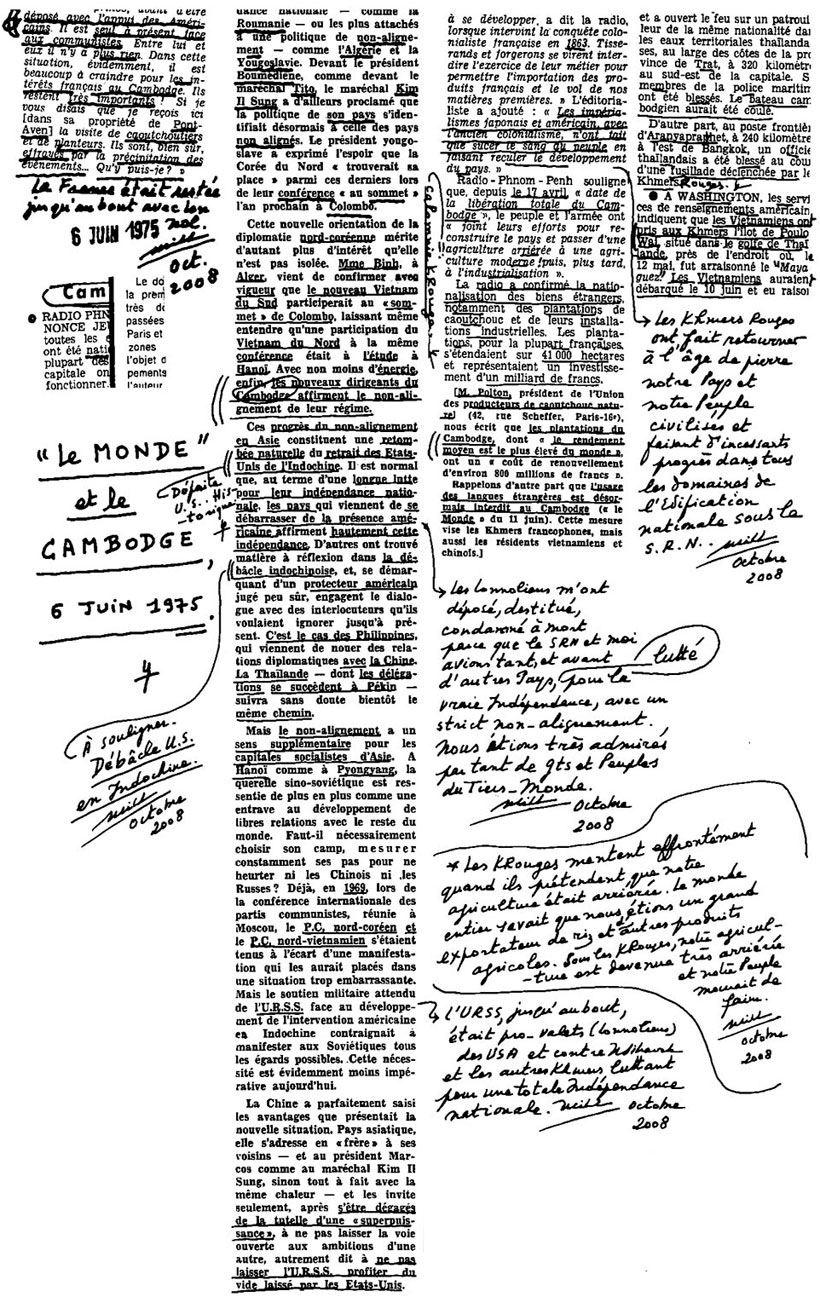 déposé avec l'appui des Améri-
cains. Il est seul à présent face
aux communistes. Entre lui et
eux il n'y a plus rien. Dans cette
situation, évidemment, il est
beaucoup à craindre pour les in-
térêts français au Cambodge. Ils
restent très importants ! Si je
vous disais que je reçois ici
[dans sa propriété de Pont-
Aven] la visite de caoutchoutiers
et de planteurs. Ils sont, bien sûr,
effrayés par la précipitation des
événements... Qu'y puis-je ? »
La France était restée
jusqu'au bout avec Lon
Nol.
6 JUIN 1975
Oct.
2008
Cam
RADIO PHN
NONCE JE
toutes les
ont été nati
plupart des
capitale on
fonctionner.
Le do
la prem
très de
passées
Paris et
zones
l'objet d
pements
l'auteur
"Le MONDE"
et le
CAMBODGE,
6 JUIN 1975.
À souligner.
Débâcle U.S.
en Indochine.
Octobre
2008
dance nationale — comme la
Roumanie — ou les plus attachés
à une politique de non-aligne-
ment — comme l'Algérie et la
Yougoslavie. Devant le président
Boumediène, comme devant le
maréchal Tito, le maréchal Kim
Il Sung a d'ailleurs proclamé que
la politique de son pays s'iden-
tifiait désormais à celle des pays
non alignés. Le président yougo-
slave a exprimé l'espoir que la
Corée du Nord « trouverait sa
place » parmi ces derniers lors
de leur conférence « au sommet »
l'an prochain à Colombo.
Cette nouvelle orientation de la
diplomatie nord-coréenne mérite
d'autant plus d'intérêt qu'elle
n'est pas isolée. Mme Binh, à
Alger, vient de confirmer avec
vigueur que le nouveau Vietnam
du Sud participerait au « som-
met » de Colombo, laissant même
entendre qu'une participation du
Vietnam du Nord à la même
conférence était à l'étude à
Hanoï. Avec non moins d'énergie,
enfin, les nouveaux dirigeants du
Cambodge affirment le non-ali-
gnement de leur régime.
Ces progrès du non-alignement
en Asie constituent une retom-
bée naturelle du retrait des Etats-
Unis de l'Indochine. Il est normal
que, au terme d'une longue lutte
pour leur indépendance natio-
nale, les pays qui viennent de se
débarrasser de la présence amé-
ricaine affirment hautement cette
indépendance. D'autres ont trouvé
matière à réflexion dans la dé-
bâcle indochinoise, et, se démar-
quant d'un protecteur américain
jugé peu sûr, engagent le dialo-
gue avec des interlocuteurs qu'ils
voulaient ignorer jusqu'à pré-
sent. C'est le cas des Philippines,
qui viennent de nouer des rela-
tions diplomatiques avec la Chine.
La Thaïlande — dont les déléga-
tions se succèdent à Pékin —
suivra sans doute bientôt le
même chemin.
Mais le non-alignement a un
sens supplémentaire pour les
capitales socialistes d'Asie. A
Hanoï comme à Pyongyang, la
querelle sino-soviétique est res-
sentie de plus en plus comme une
entrave au développement de
libres relations avec le reste du
monde. Faut-il nécessairement
choisir son camp, mesurer
constamment ses pas pour ne
heurter ni les Chinois ni les
Russes ? Déjà, en 1969, lors de
la conférence internationale des
partis communistes, réunie à
Moscou, le P.C. nord-coréen et
le P.C. nord-vietnamien s'étaient
tenus à l'écart d'une manifesta-
tion qui les aurait placés dans
une situation trop embarrassante.
Mais le soutien militaire attendu
de l'U.R.S.S. face au développe-
ment de l'intervention américaine
en Indochine contraignait à
manifester aux Soviétiques tous
les égards possibles. Cette néces-
sité est évidemment moins impé-
rative aujourd'hui.
La Chine a parfaitement saisi
les avantages que présentait la
nouvelle situation. Pays asiatique,
elle s'adresse en « frère » à ses
voisins — et au président Mar-
cos comme au maréchal Kim Il
Sung, sinon tout à fait avec la
même chaleur — et les invite
seulement, après s'être dégagés
de la tutelle d'une « superpuis-
sance », à ne pas laisser la voie
ouverte aux ambitions d'une
autre, autrement dit à ne pas
laisser l'U.R.S.S. profiter du
vide laissé par les Etats-Unis.
Défaite
U.S.. His-
torique
à se développer, a dit la radio,
lorsque intervint la conquête colo-
nialiste française en 1863. Tisse-
rands et forgerons se virent inter-
dire l'exercice de leur métier pour
permettre l'importation des pro-
duits français et le vol de nos
matières premières. » L'éditoria-
liste a ajouté : « Les impéria-
lismes japonais et américain, avec
l'ancien colonialisme, n'ont fait
que sucer le sang du peuple en
faisant reculer le développement
du pays. »
Radio-Phnom-Penh souligne
que, depuis le 17 avril « date de
la libération totale du Cam-
bodge », le peuple et l'armée ont
« joint leurs efforts pour re-
construire le pays et passer d'une
agriculture arriérée à une agri-
culture moderne puis, plus tard,
à l'industrialisation ».
La radio a confirmé la natio-
nalisation des biens étrangers,
notamment des plantations de
caoutchouc et de leurs installa-
tions industrielles. Les planta-
tions, pour la plupart françaises,
s'étendaient sur 41 000 hectares
et représentaient un investisse-
ment d'un milliard de francs.
[M. Polton, président de l'Union
des producteurs de caoutchouc natu-
rel (42, rue Scheffer, Paris-16e),
nous écrit que les plantations du
Cambodge, dont « le rendement
moyen est le plus élevé du monde »,
ont un « coût de renouvellement
d'environ 800 millions de francs ».
Rappelons d'autre part que l'usage
des langues étrangères est désor-
mais interdit au Cambodge (« le
Monde » du 11 juin). Cette mesure
vise les Khmers francophones, mais
aussi les résidents vietnamiens et
chinois.]
Calomnie K.Rouge
Les Lonnoliens m'ont
déposé, destitué,
condamné à mort
parce que le SRN et moi
avions tant, et avant lutté
d'autres Pays, pour la
vraie Indépendance, avec un
strict non-alignement.
Nous étions très admirés
par tant de gts et Peuples
du Tiers-Monde.
Octobre
2008
* Les KRouges mentent effrontément
quand ils prétendent que notre
agriculture était arriérée. Le monde
entier savait que nous étions un grand
exportateur de riz et d'autres produits
agricoles. Sous les KRouges, notre agricul-
-ture est devenue très arriérée
et notre Peuple
mourait de
faim.
octobre
2008
L'URSS, jusqu'au bout,
était pro-valets (Lonnoliens)
des USA et contre N.Sihanouk
et les autres Khmers luttant
pour une totale Indépendance
nationale. octobre
2008
et a ouvert le feu sur un patroui
leur de la même nationalité da
les eaux territoriales thaïlanda
ses, au large des côtes de la pro
vince de Trat, à 320 kilomètr
au sud-est de la capitale. S
membres de la police maritim
ont été blessés. Le bateau cam
bodgien aurait été coulé.
D'autre part, au poste frontiè
d'Aranyaprathet, à 240 kilomètre
à l'est de Bangkok, un officie
thaïlandais a été blessé au cou
d'une fusillade déclenchée par le
Khmers Rouges.
● A WASHINGTON, les servi
ces de renseignements américain
indiquent que les Vietnamiens ont
pris aux Khmers l'îlot de Poulo
Wai, situé dans le golfe de Thaï
lande, près de l'endroit où, le
12 mai, fut arraisonné le "Maya
guez". Les Vietnamiens auraient
débarqué le 10 juin et eu raison
Les Khmers Rouges
ont fait retourner
à l'âge de pierre
notre Pays et
notre Peuple
civilisés et
faisant d'incessants
progrès dans tous
les domaines de
l'Edification
nationale sous le
S.R.N..
Octobre
2008